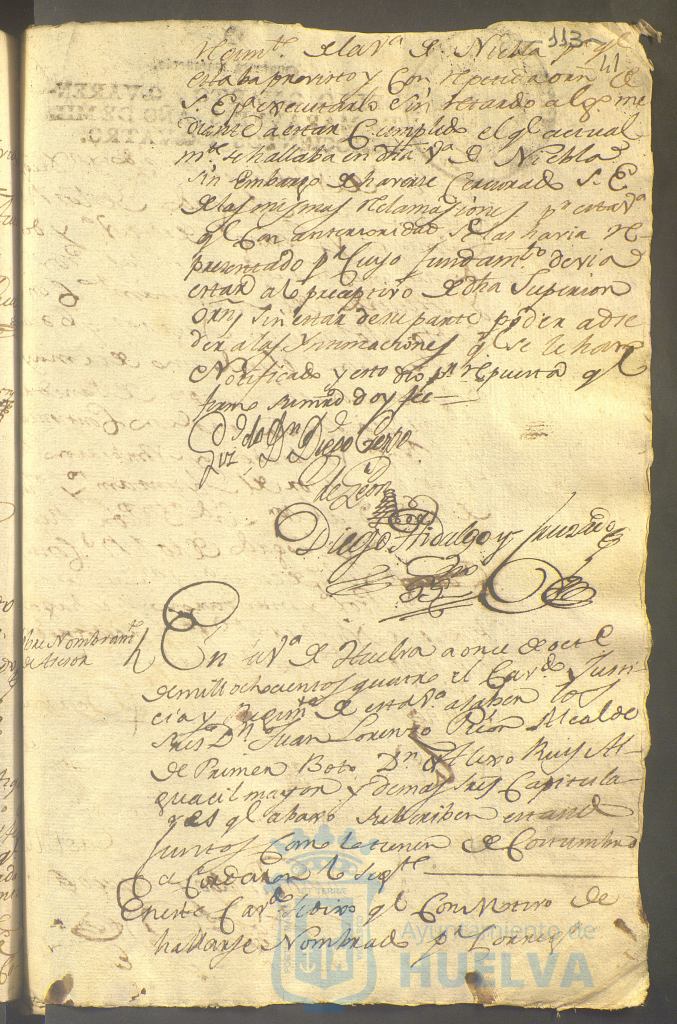 113
41
de la Vª de Niebla pr ql
estaba previsto y con repetida orn de
S. E. executarlo sin retardo algº me
diante a estar Cumplido el ql actual
mte se hallaba en dha Vª de Niebla
sin embargo de haverse Cerciorado S. E.
de las mismas reclamasiones pr esta Vª
ql con anterioridad se las havia re
presentado pr cuyo fundamto devia
estar al preceptivo de dha Superior
Orn, sin estar de su parte poder acce
der a las Ynsinuaciones ql se le han
Notificado y esto dio pr respuesta ql
firmó de qe doy fee
Dn Diego
de León
Diego Hidalgo y
bre Nombramto
de Asesor
En la Vª de Huelva a once de octe
de mill ochocientos quatro el Cavdo Justi
cia y Regimto de esta Vª a saben los
Sres Dn Juan Lorenzo Alcalde
de Primer Boto, Dn Ruiz Al
guacil mayor y demas Sres Capitula
res ql abaxo subscriben estand
juntos Como lo tienen de Costumbre
acordaron lo Sigte
En este Cavdo se dixo ql Con Motivo de
hallarse Nombrado pr
Ayuntamiento de
HUELVA